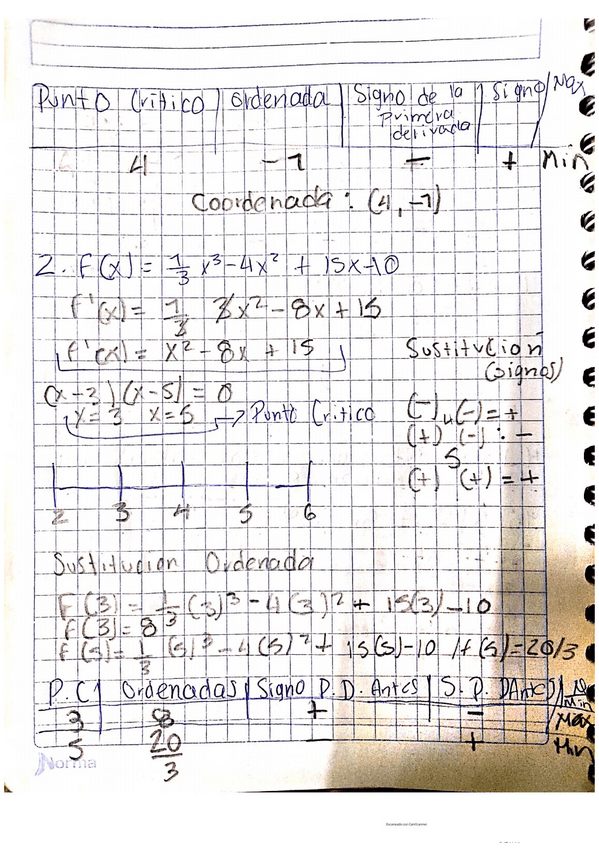 Punto Critico | Ordenada | Signo de la Primera derivada | Signo / Max
4 -1 - + Min
Coordenada : (4, -1)
2. F(x) = 1/3 x³ - 4x² + 15x - 10
f'(x) = 1/3 3x² - 8x + 15
f'(x) = x² - 8x + 15
Sustitucion (signos)
(x-3)(x-5) = 0
x=3 x=5 → Punto Critico
(-) 4 (-) = +
(+) (-) : -
5
(+) (+) = +
2 3 4 5 6
Sustitucion Ordenada
F(3) = 1/3 (3)³ - 4(3)² + 15(3) - 10
f(3) = 8
f(5) = 1/3 (5)³ - 4(5)² + 15(5) - 10 / f(5) = 20/3
P.C | Ordenadas | Signo P.D. Antes | S.P. DAntes | Min
3 8 + - Max
5 20/3 - + Min
Norma
Escaneado con CamScanner